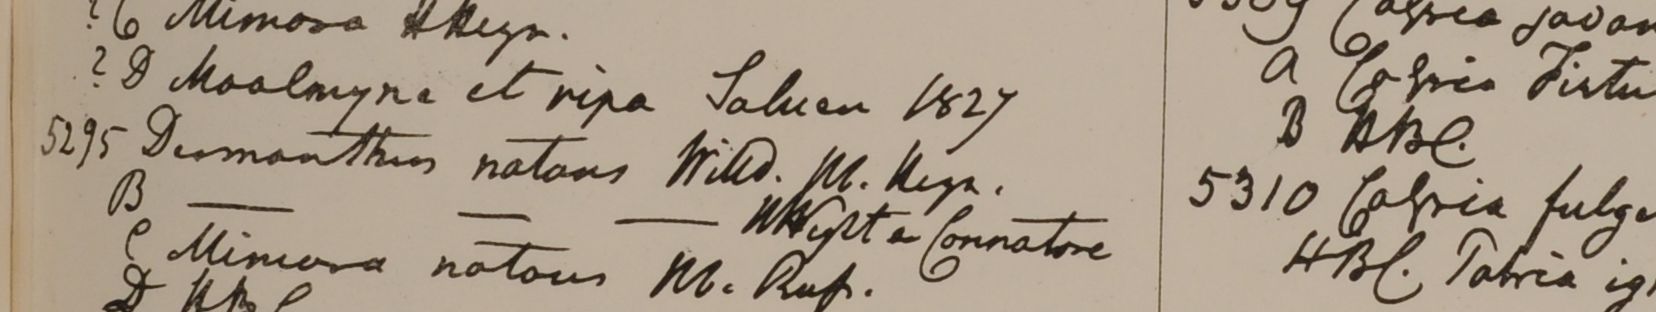 ? C Mimosa HHeyn.
? D Moalmyne et ripa Saluen 1827
5295 Desmanthus natans Willd. M. Heyn.
B — — — HWight a Connatore
C Mimosa natans M. Ruf.
D HBC
Cassia javan
A Cassia Fistu
B HBC.
5310 Cassia fulge
HBC.